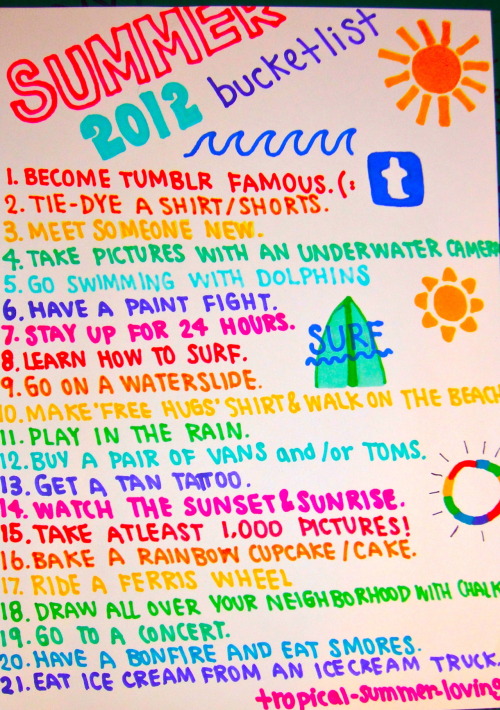 SUMMER
2012 bucketlist
1. BECOME TUMBLR FAMOUS. (:
t
2. TIE-DYE A SHIRT/SHORTS.
3. MEET SOMEONE NEW.
4. TAKE PICTURES WITH AN UNDERWATER CAMERA
5. GO SWIMMING WITH DOLPHINS
6. HAVE A PAINT FIGHT.
7. STAY UP FOR 24 HOURS.
SURF
8. LEARN HOW TO SURF.
9. GO ON A WATERSLIDE.
10. MAKE 'FREE HUGS' SHIRT & WALK ON THE BEACH
11. PLAY IN THE RAIN.
12. BUY A PAIR OF VANS and/or TOMS.
13. GET A TAN TATTOO.
14. WATCH THE SUNSET & SUNRISE.
15. TAKE ATLEAST 1,000 PICTURES!
16. BAKE A RAINBOW CUPCAKE/CAKE.
17. RIDE A FERRIS WHEEL
18. DRAW ALL OVER YOUR NEIGHBORHOOD WITH CHALK
19. GO TO A CONCERT.
20. HAVE A BONFIRE AND EAT SMORES.
21. EAT ICE CREAM FROM AN ICECREAM TRUCK.
tropical-summer-loving